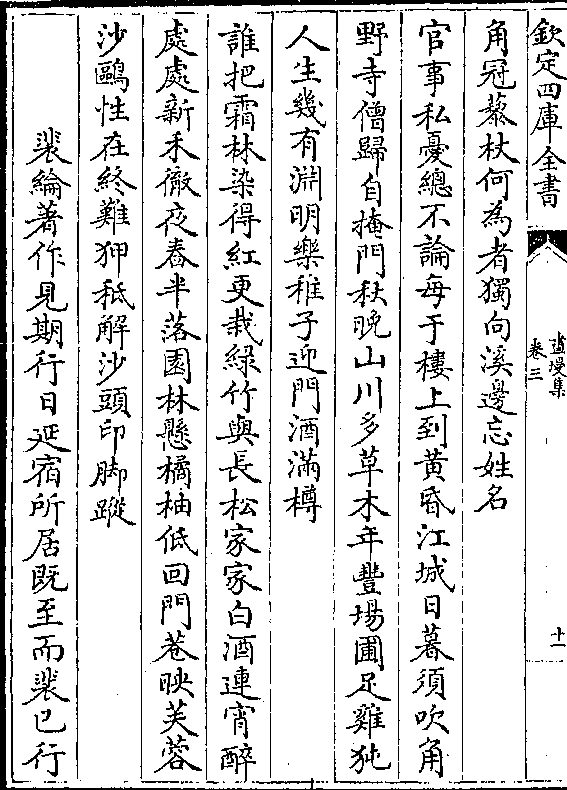 欽定四庫全書
畫墁集
卷三
十一
角冠藜杖何為者獨向溪邊忘姓名
官事私憂總不論每于樓上到黃昏江城日暮須吹角
野寺僧歸自掩門秋晩山川多草木年豐場圃足雞㹠
人生幾有淵明樂稚子迎門酒滿樽
誰把霜林染得紅更栽緑竹與長松家家白酒連宵醉
處處新禾徹夜舂半落園林懸橘柚低回門巷映芙蓉
沙鷗性在終難狎秪解沙頭印脚蹤
裴綸著作見期行日延宿所居既至而裴已行